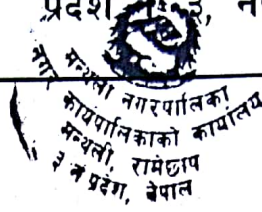 प्रदेश नं. ३, ने
मन्थली नगरपालिका
नगर कार्यपालिकाको कार्यालय
मन्थली, रामेछाप
३ नं प्रदेश, नेपाल